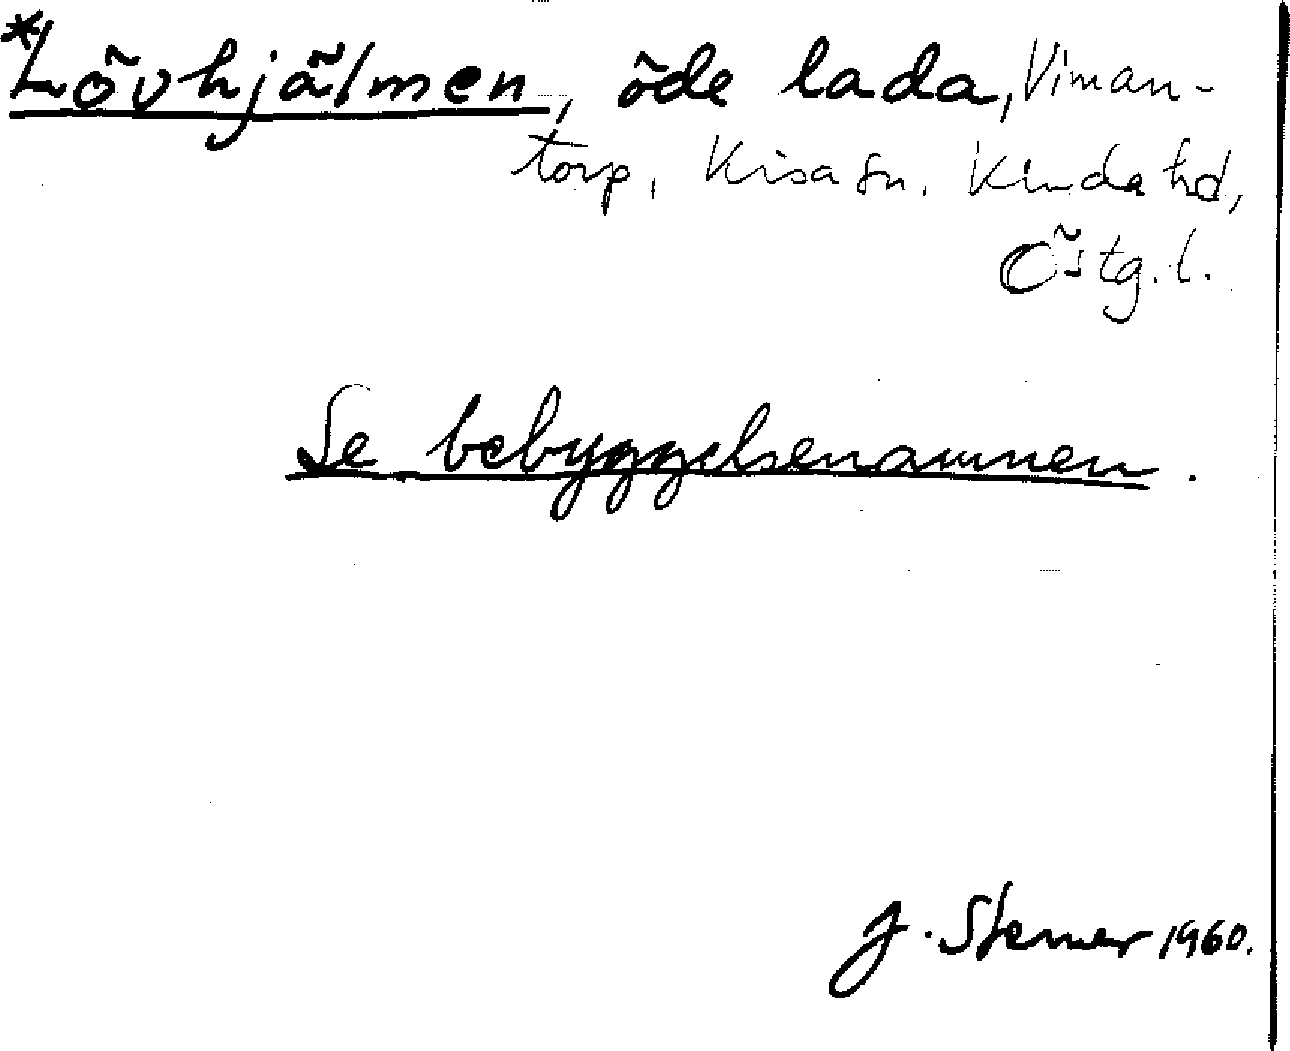 *Lövhjälmen, öde lada, Viman-
torp, Kisa sn. Kinda hd,
Östg. l.
Se bebyggelsenamnen.
J. Sterner 1960.